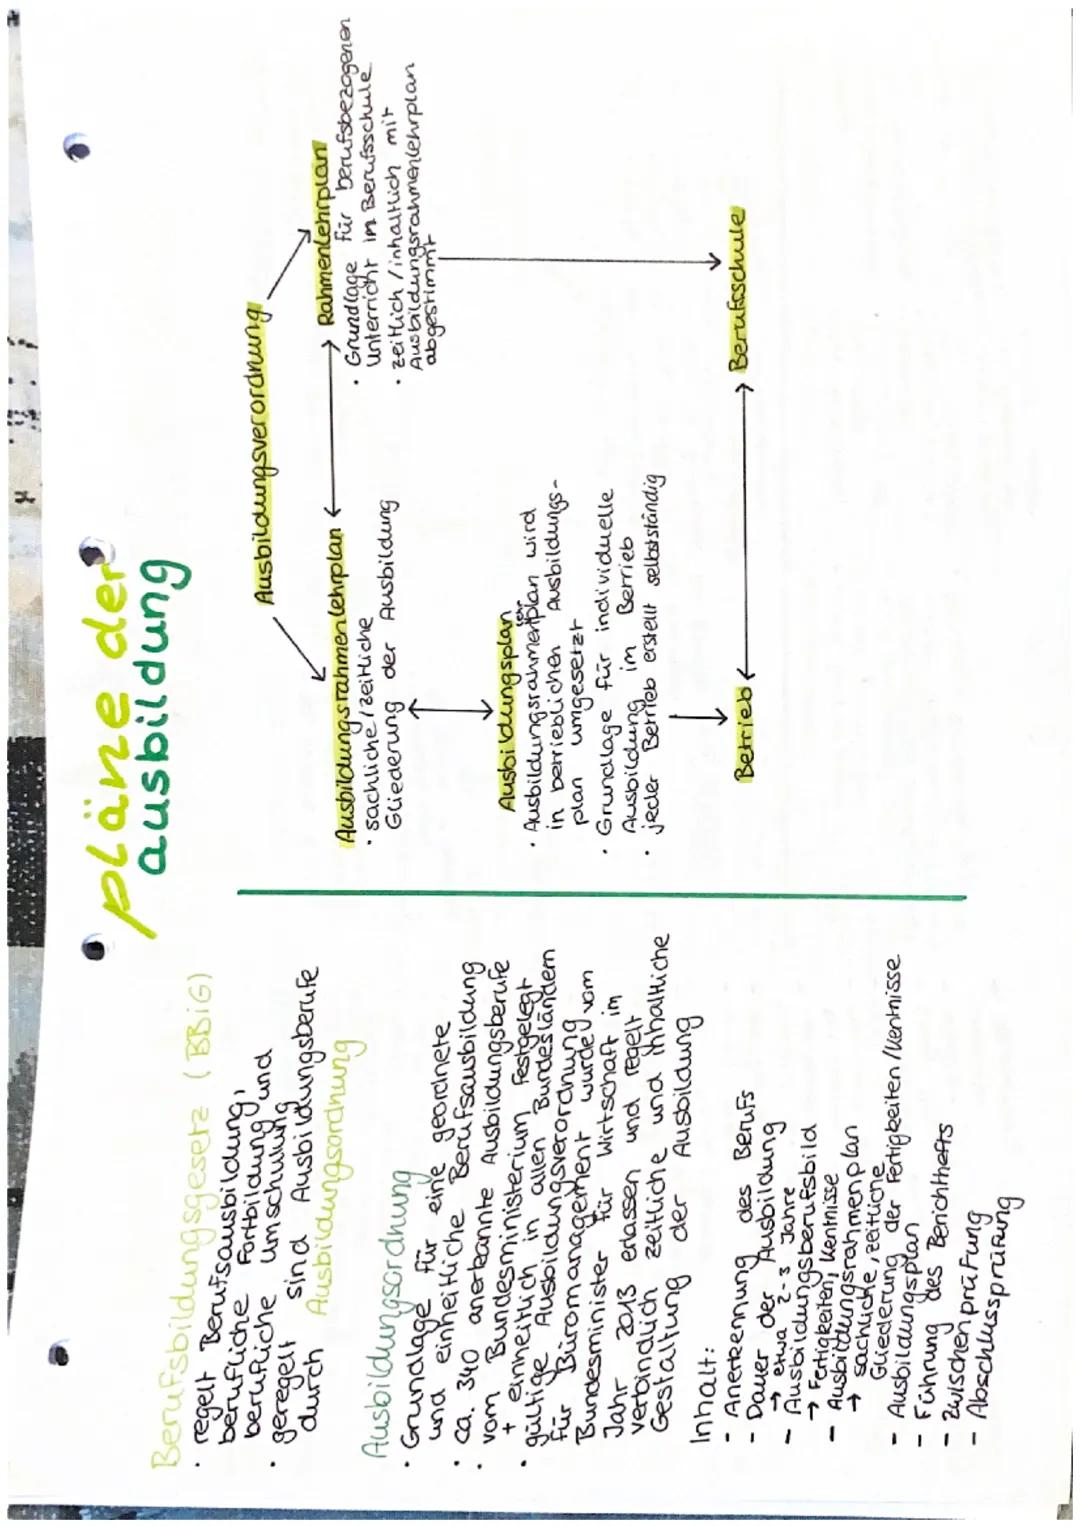 pläne der
ausbildung
Berufsbildungsgesetz (BBiG)
· regelt Berufsausbildung,
berufliche Fortbildung und
berufliche Umschulung
· geregelt sind Ausbildungsberufe
durch Ausbildungsordnung
Ausbildungsordnung
· Grundlage für eine geordnete
und einheitliche Berufsausbildung
· ca. 340 anerkannte Ausbildungsberufe
· vom Bundesministerium festgelegt
+ einheitlich in allen Bundesländern
· gültige Ausbildungsverordnung
für Büromanagement wurde vom
Bundesminister für Wirtschaft im
Jahr 2013 erlassen und regelt
verbindlich zeitliche und inhaltliche
Gestaltung der Ausbildung
Inhalt:
- Anerkennung des Berufs
- Dauer der Ausbildung
→ etwa 2-3 Jahre
- Ausbildungsberufsbild
→ Fertigkeiten, Kentnisse
- Ausbildungsrahmenplan
→ sachliche, zeitliche
Gliederung der Fertigkeiten/Kentnisse
- Ausbildungsplan
- Führung des Berichthefts
- Zwischenprüfung
- Abschlussprüfung
Ausbildungsverordnung
Ausbildungsrahmenlehrplan
· sachliche/zeitliche
Gliederung der Ausbildung
Rahmenlehrplan
· Grundlage für berufsbezogenen
Unterricht im Berufsschule
· zeitlich/inhaltlich mit
Ausbildungsrahmenlehrplan
abgestimmt
Ausbildungsplan
· Ausbildungsrahmenlehrplan wird
in betrieblichen Ausbildungs-
plan umgesetzt
· Grundlage für individuelle
Ausbildung im Betrieb
· jeder Betrieb erstellt selbstständig
Betrieb
Berufsschule